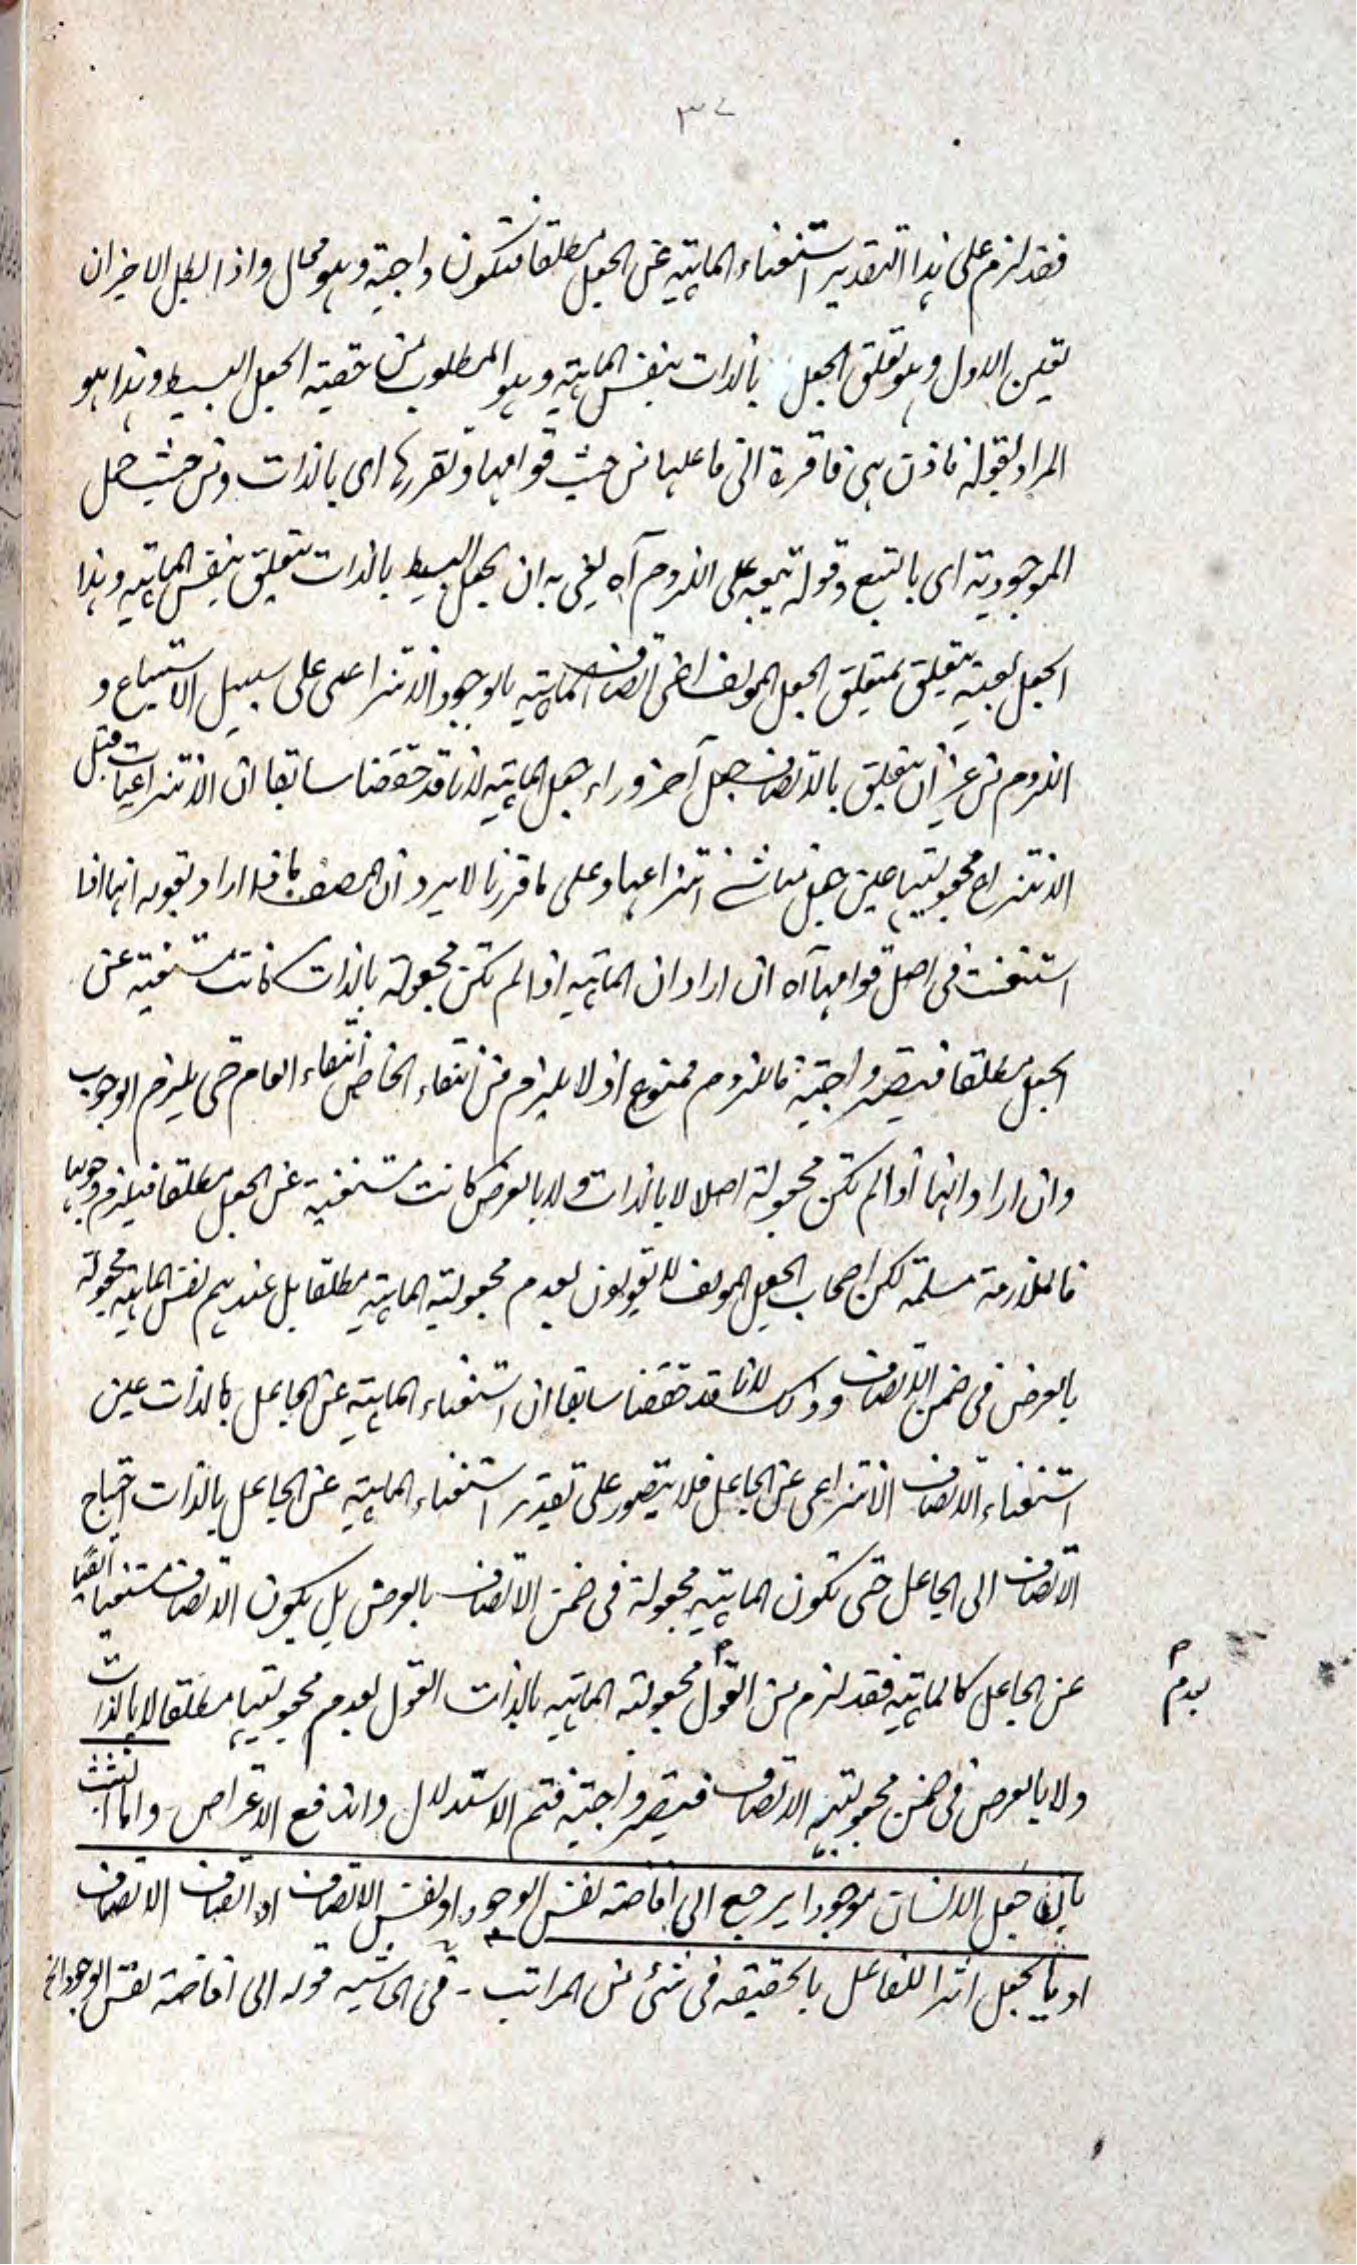 ٣٧
فقد لزم على هذا التقدير استغناء الماهية عن الجعل مطلقا فتكون واجبة وهو محال واذا بطل الاخيران
تعين الاول وهو تعلق الجعل بالذات بنفس الماهية وهو المطلوب من حقية الجعل البسيط وهذا هو
المراد بقوله فاذن هي فاقرة الى فاعلها من حيث قوامها وتقررها اى بالذات ومن حيث حمل
الموجودية اى بالتبع وقوله تبعية على اللزوم آه يعنى به ان الجعل البسيط بالذات يتعلق بنفس الماهية وهذا
الجعل بعينه يتعلق بمتعلق الجعل المولف اعنى اتصاف الماهية بالوجود الانتزاعى على سبيل الاستتباع و
اللزوم من غير ان يتعلق بالاتصاف جعل آخر وراء جعل الماهية لانا قد حققنا سابقا ان الانتزاعيات قبل
الانتزاع مجعوليتها عين جعل مناشئ انتزاعها وعلى ما قررنا لا يرد ان المصنف ماذا اراد بقوله انها اذا
استغنت فى اصل قوامها آه ان اراد ان الماهية اذا لم تكن مجعولة بالذات كانت مستغنية عن
الجعل مطلقا فيصير واجبة فاللزوم ممنوع اذ لا يلزم من انتفاء الخاص انتفاء العام حتى يلزم الوجوب
وان اراد انها اذا لم تكن مجعولة اصلا لا بالذات ولا بالعرض كانت مستغنية عن الجعل مطلقا فيلزم وجوبها
فالملازمة مسلمة لكن اصحاب الجعل المولف لا يقولون بعدم مجعولية الماهية مطلقا بل عندهم نفس الماهية مجعولة
بالعرض فى ضمن الاتصاف وذلك لانا قد حققنا سابقا ان استغناء الماهية عن الجاعل بالذات عين
استغناء الاتصاف الانتزاعى عن الجاعل فلا يتصور على تقدير استغناء الماهية عن الجاعل بالذات احتياج
الاتصاف الى الجاعل حتى تكون الماهية مجعولة فى ضمن الاتصاف بالعرض بل يكون الاتصاف مستغنيا ايضًا
عن الجاعل كالماهية فقد لزم من القول مجعولية الماهية بالذات القول بعدم مجعوليتها مطلقا لا بالذات
بعدم
ولا بالعرض فى ضمن مجعولية الاتصاف فيصير واجبة فتم الاستدلال واندفع الاعتراض واما التشبث
بان جعل الانسان موجودا يرجع الى افاضة نفس الوجود او نفس الاتصاف او اتصاف الاتصاف
او ما يجعل اثرا للفاعل بالحقيقة فى شئ من المراتب - فى الحاشية قوله الى افاضة نفس الوجود الخ